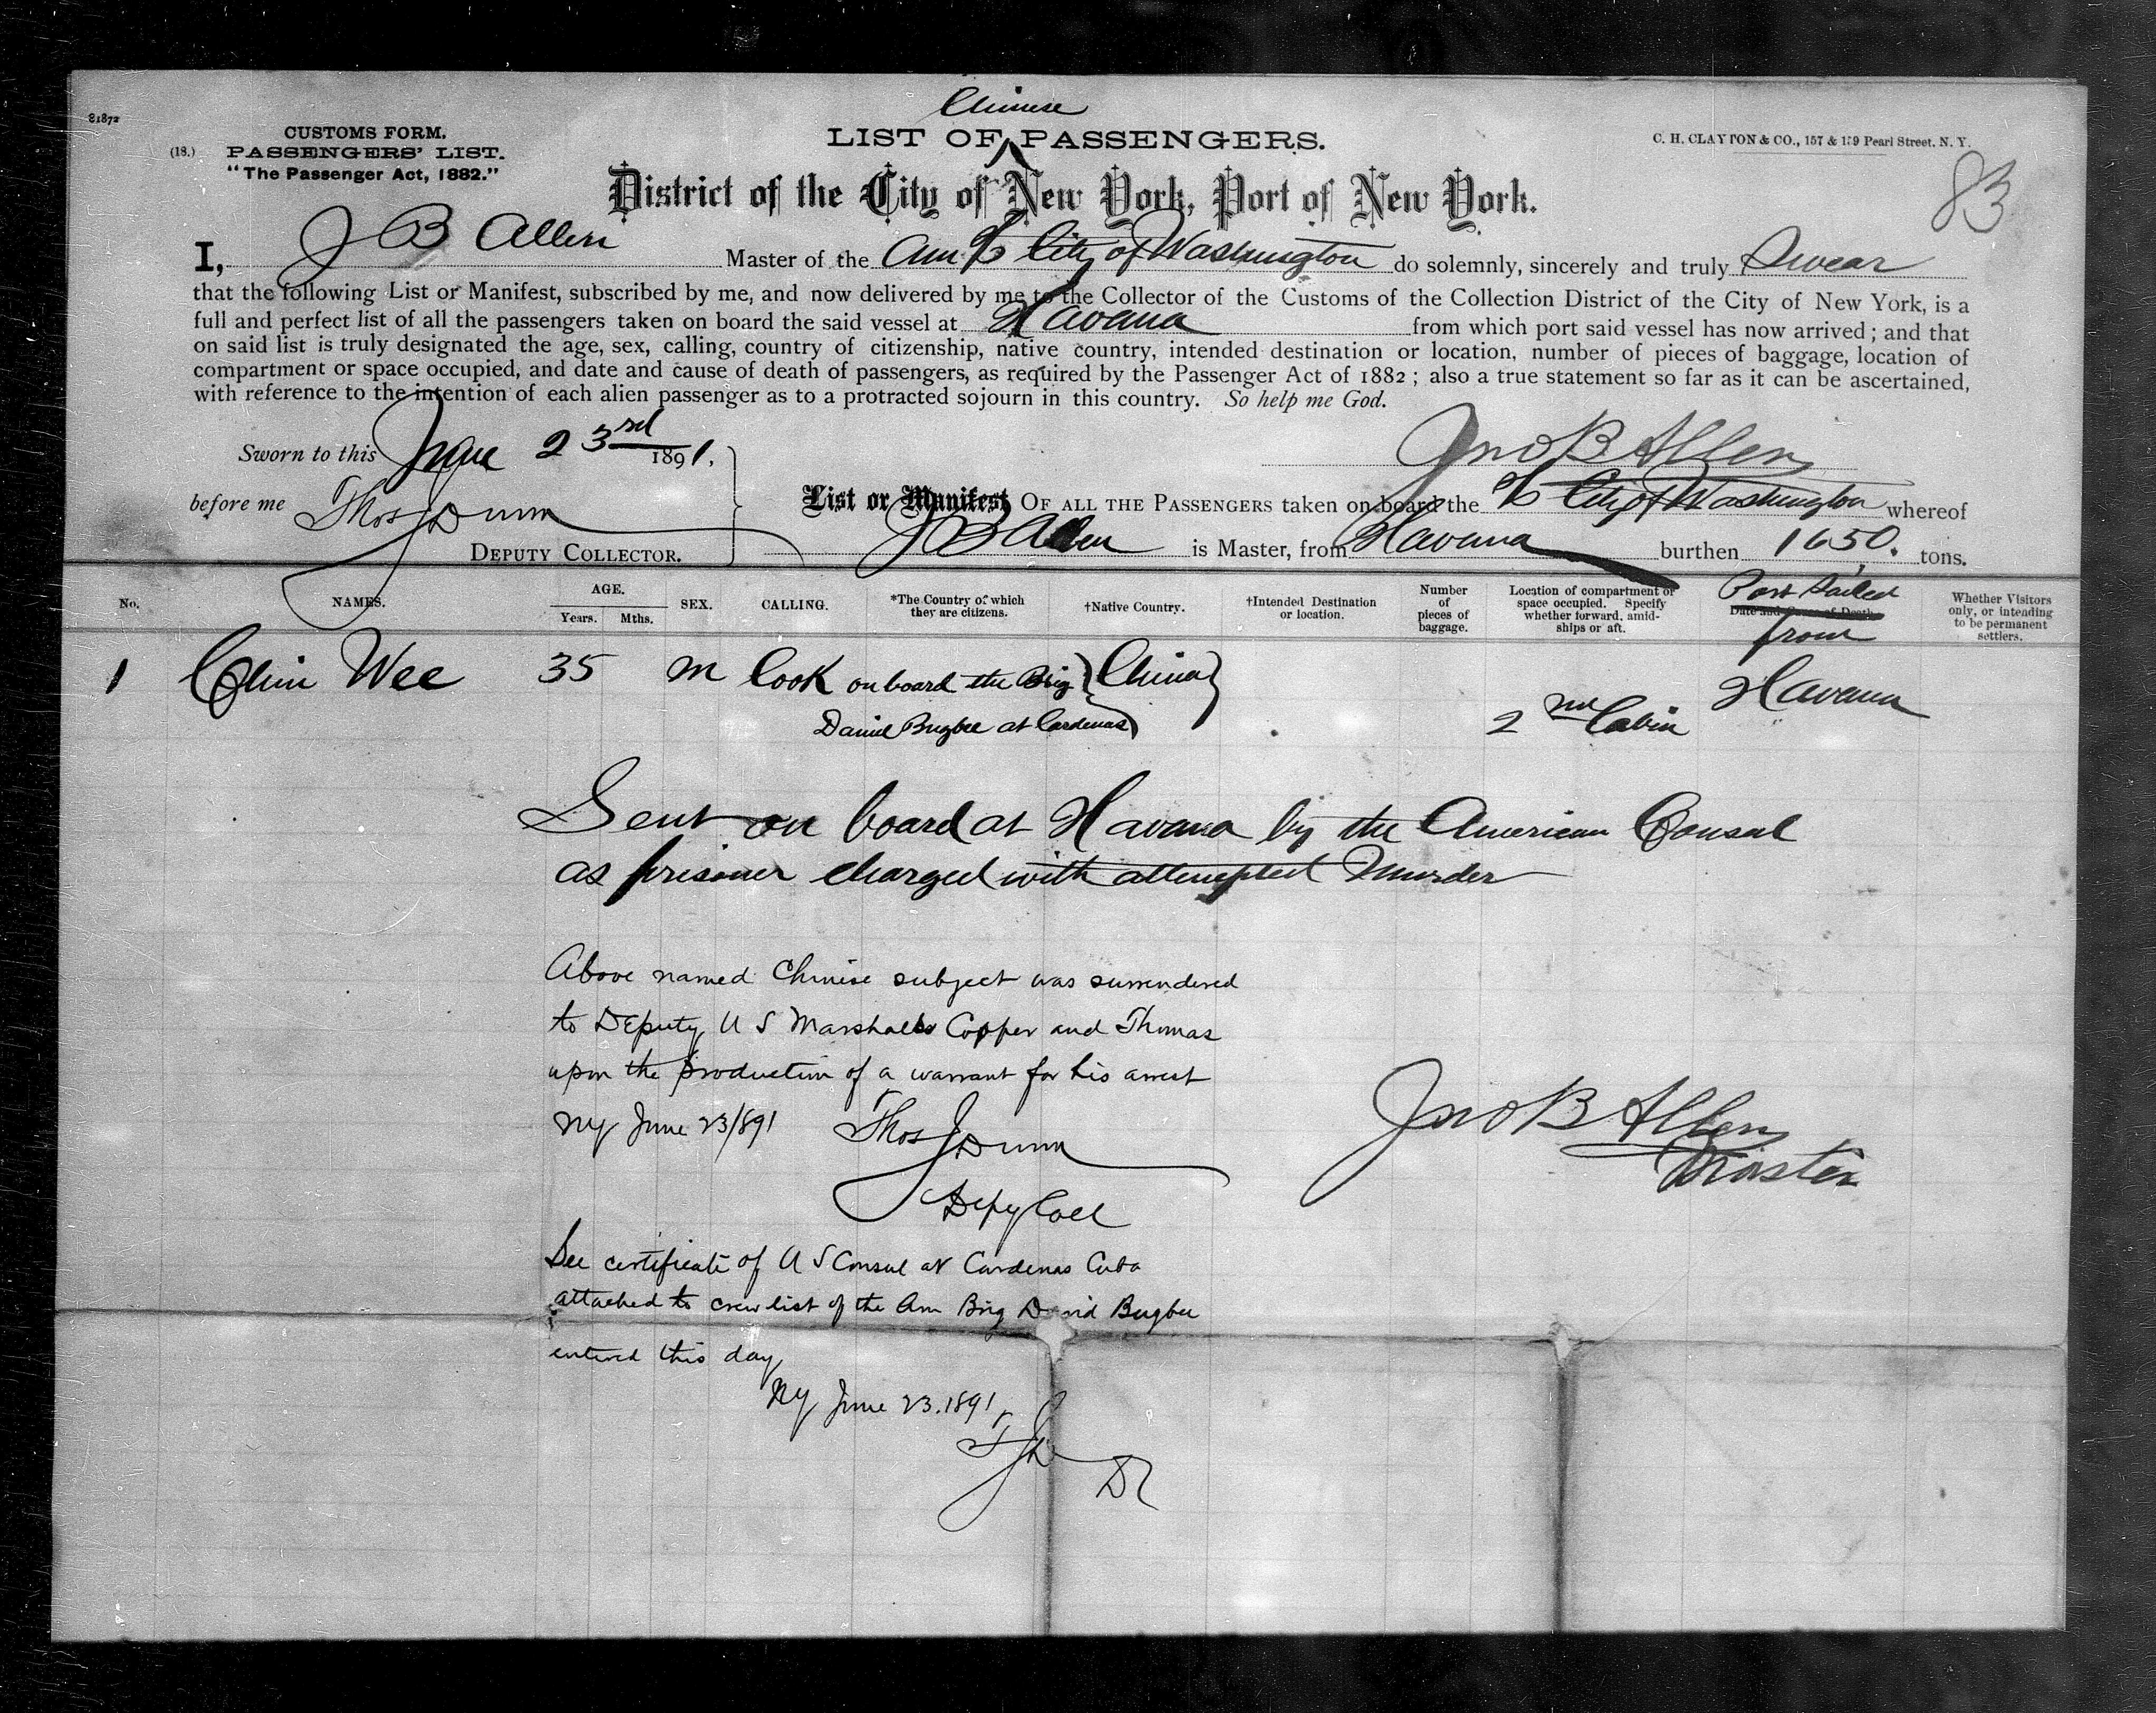 81872
(18.)
CUSTOMS FORM.
PASSENGERS' LIST.
"The Passenger Act, 1882."
Chinese
LIST OF PASSENGERS.
C. H. CLAYTON & CO., 157 & 159 Pearl Street, N. Y.
83
District of the City of New York, Port of New York.
I, J B Allen Master of the Am S/S City of Washington do solemnly, sincerely and truly Swear
that the following List or Manifest, subscribed by me, and now delivered by me to the Collector of the Customs of the Collection District of the City of New York, is a
full and perfect list of all the passengers taken on board the said vessel at Havana from which port said vessel has now arrived; and that
on said list is truly designated the age, sex, calling, country of citizenship, native country, intended destination or location, number of pieces of baggage, location of
compartment or space occupied, and date and cause of death of passengers, as required by the Passenger Act of 1882; also a true statement so far as it can be ascertained,
with reference to the intention of each alien passenger as to a protracted sojourn in this country. So help me God.
Sworn to this June 23rd 1891.
Jno B Allen
before me Thos J Dunn
DEPUTY COLLECTOR.
List or Manifest OF ALL THE PASSENGERS taken on board the S/S City of Washington whereof
J B Allen is Master, from Havana burthen 1650. tons.
No.
NAMES.
AGE.
Years. Mths.
SEX.
CALLING.
*The Country of which
they are citizens.
†Native Country.
†Intended Destination
or location.
Number
of
pieces of
baggage.
Location of compartment or
space occupied. Specify
whether forward, amid-
ships or aft.
Port Sailed
Date and Cause of Death
from
Whether Visitors
only, or intending
to be permanent
settlers.
1 Chin Wee 35 M Cook on board the Brig China Havana
Daniel Bugbee at Cardenas 2nd Cabin
Sent on board at Havana by the American Consul
as prisoner charged with attempted Murder
Above named Chinese subject was surrendered
to Deputy U S Marshalls Copper and Thomas
upon the production of a warrant for his arrest
NY June 23/891 Thos J Dunn
Depy Coll
Jno B Allen
Master
See certificate of U S Consul at Cardenas Cuba
attached to crew list of the Am Brig David Bugbee
entered this day
NY June 23.1891
TJD
DC